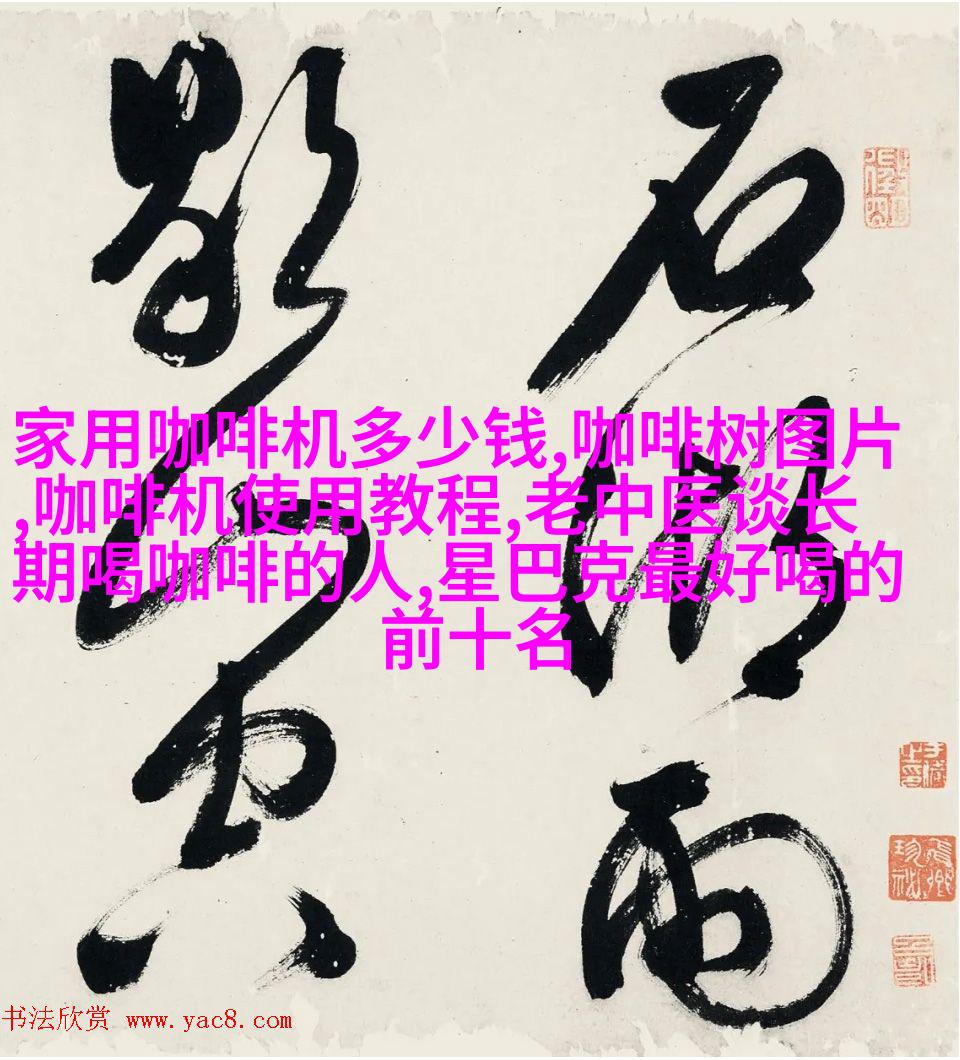 石湖雨
歇山空
家用咖啡机多少钱,咖啡树图片
,咖啡机使用教程,老中医谈长
期喝咖啡的人,星巴克最好喝的
前十名
书法欣赏 www.yac8.com